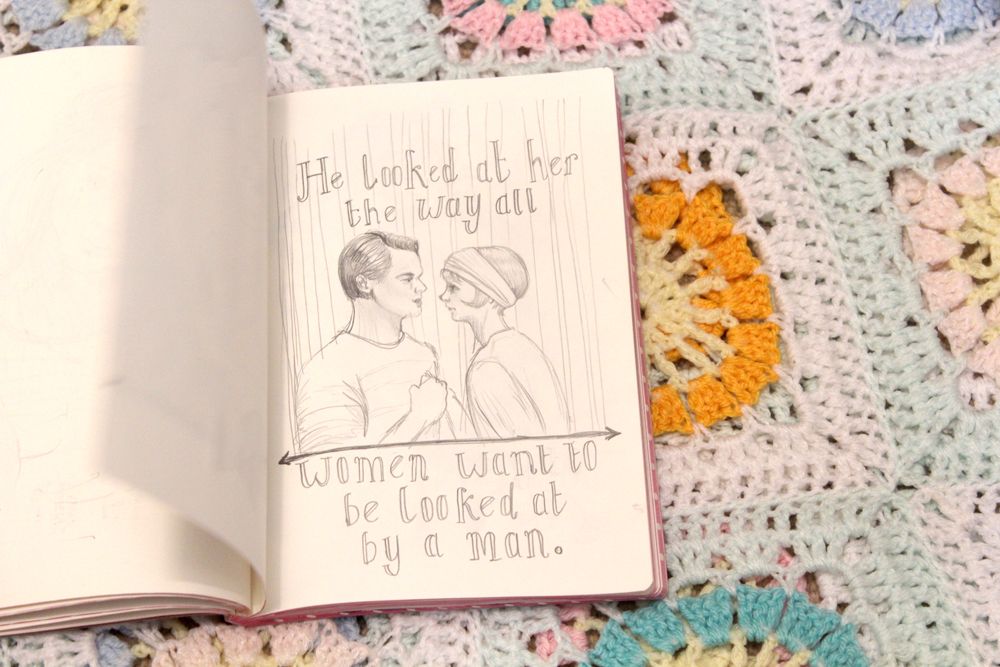 He looked at her
the way all
women want to
be looked at
by a man.